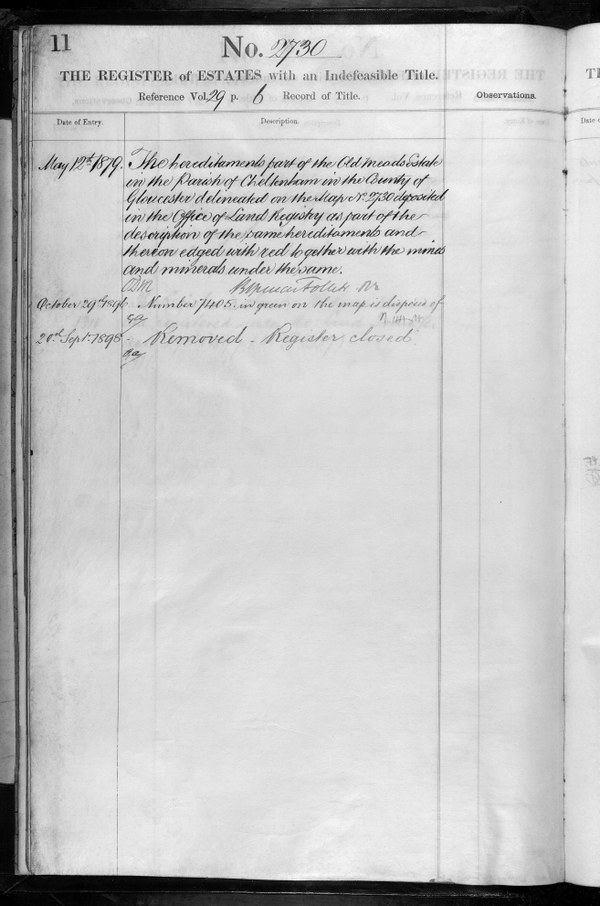 11
No. 2730
THE REGISTER of ESTATES with an Indefeasible Title.
Reference Vol. 29 p. 6 Record of Title.
Observations.
Date of Entry.
Description.
May 12th 1879. The hereditaments part of the Old Meads Estate
in the Parish of Cheltenham in the County of
Gloucester delineated on the Map No. 2730 deposited
in the Office of Land Registry as part of the
description of the same hereditaments and
thereon edged with red together with the mines
and minerals under the same.
October 29th Number 7405 in green on the map is disposed of
20th Sept. 1898. Removed - Register closed